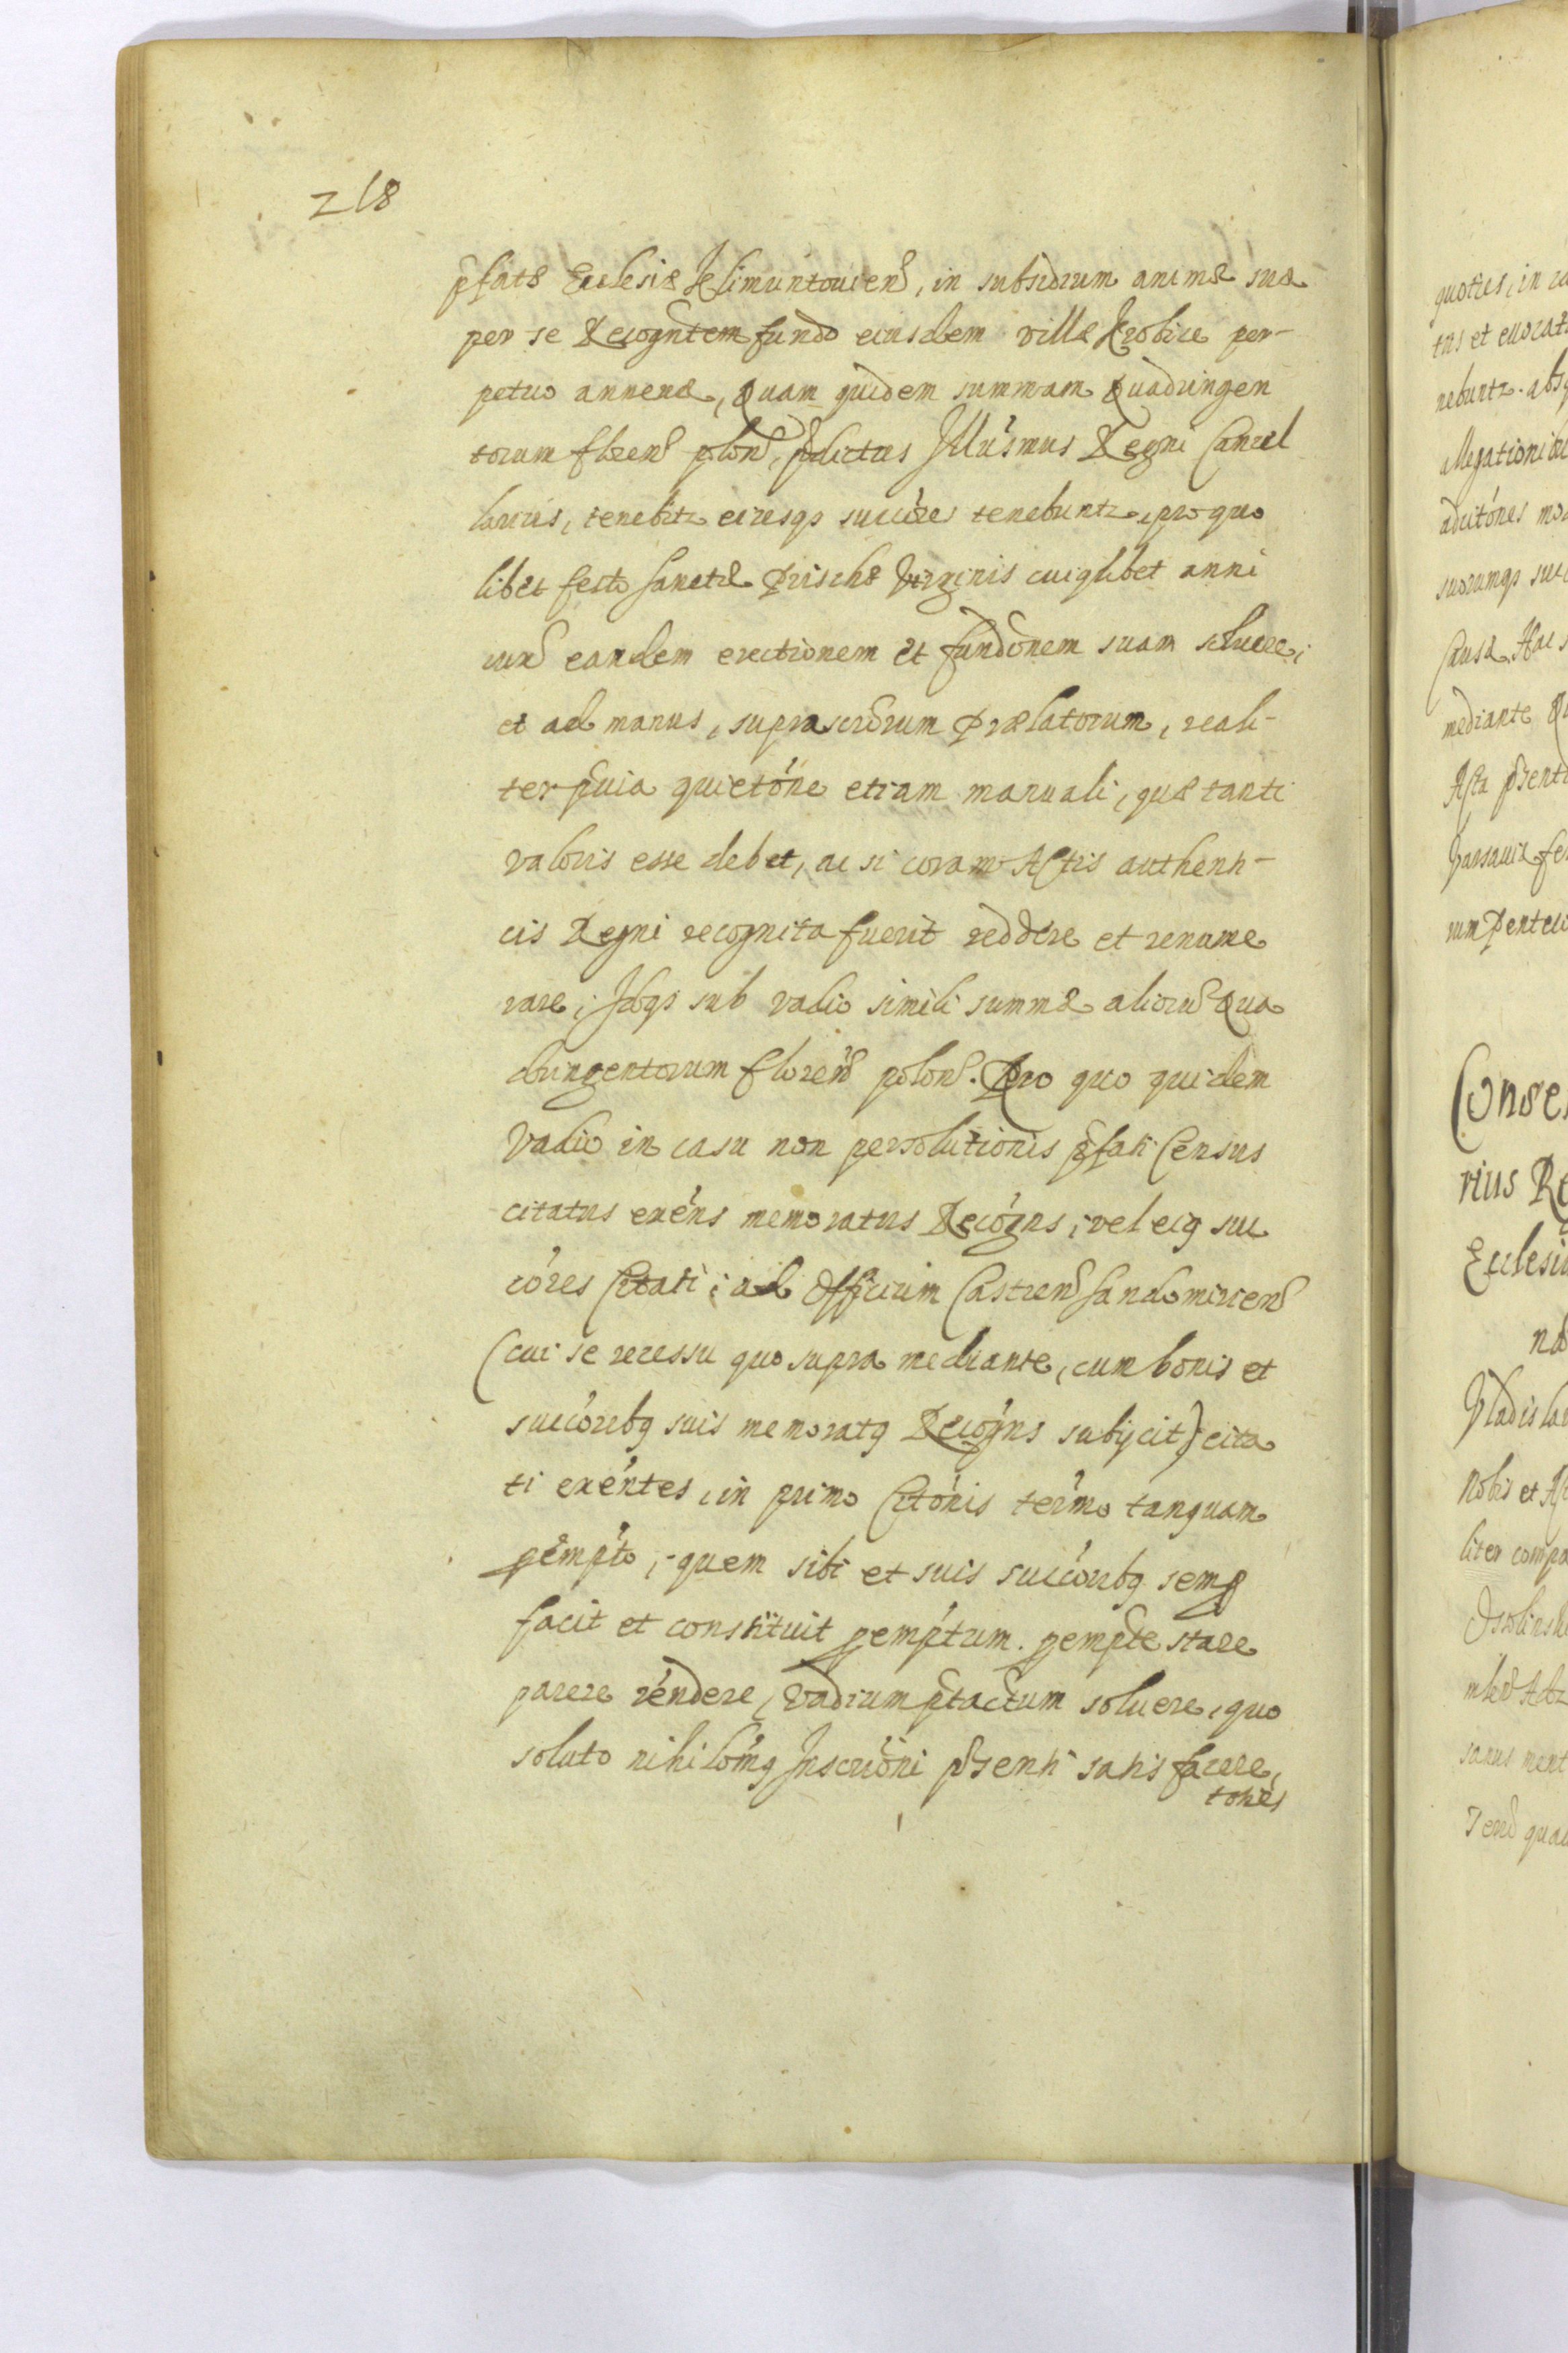 218
pfatæ Ecclesiæ Klimuntouien, in subsidium animæ suæ
per se Recogntem fundo eiusdem villæ Krobice per-
petuo annexæ, Quam quidem summam Quadringen
torum floren polon, pdictus Illusmus Regni Cancel
larius, tenebitr eiusqs succores tenebuntr, pro quo
libet festo Sanctæ Prischæ Virginis cuiqlibet anni
iux eandem erectionem et fundonem suam soluere,
et ad manus, suprascrorum Prælatorum, reali-
ter pvia quietone etiam manuali, quæ tanti
valoris esse debet, ac si coram Actis authenti-
cis Regni recognita fuerit reddere et renume
rare, Idqs sub vadio simili summæ alioru Qua
dringentorum floren polon. Pro quo quidem
Vadio in casu non persolutionis pfati Census
citatus exens memoratus Recogns, vel eiq suc
cores Citati, ad Officium Castren Sandomirien
(cui se recessu quo supra mediante, cum bonis et
succorebq suis memoratq Recogns subijcit) cita
ti exentes, in primo Citonis termo tanquam
pempto, quem sibi et suis succorebq semp
facit et constituit pemptum. pempte stare
parere rendere, Vadium ptactum soluere, quo
soluto nihilomq Inscrioni psenti satisfacere,
toties
quoties, in
tus et euocat
nebuntr. abs
allegationib
aditones
suorumqs suc
Causa. Hac
mediante
Acta psenti
Varsauiæ fe
rum Pentec
Conse
rius Re
Ecclesi
Vladisla
Nobis et Ac
liter compa
Ossolinsk
sanus ment